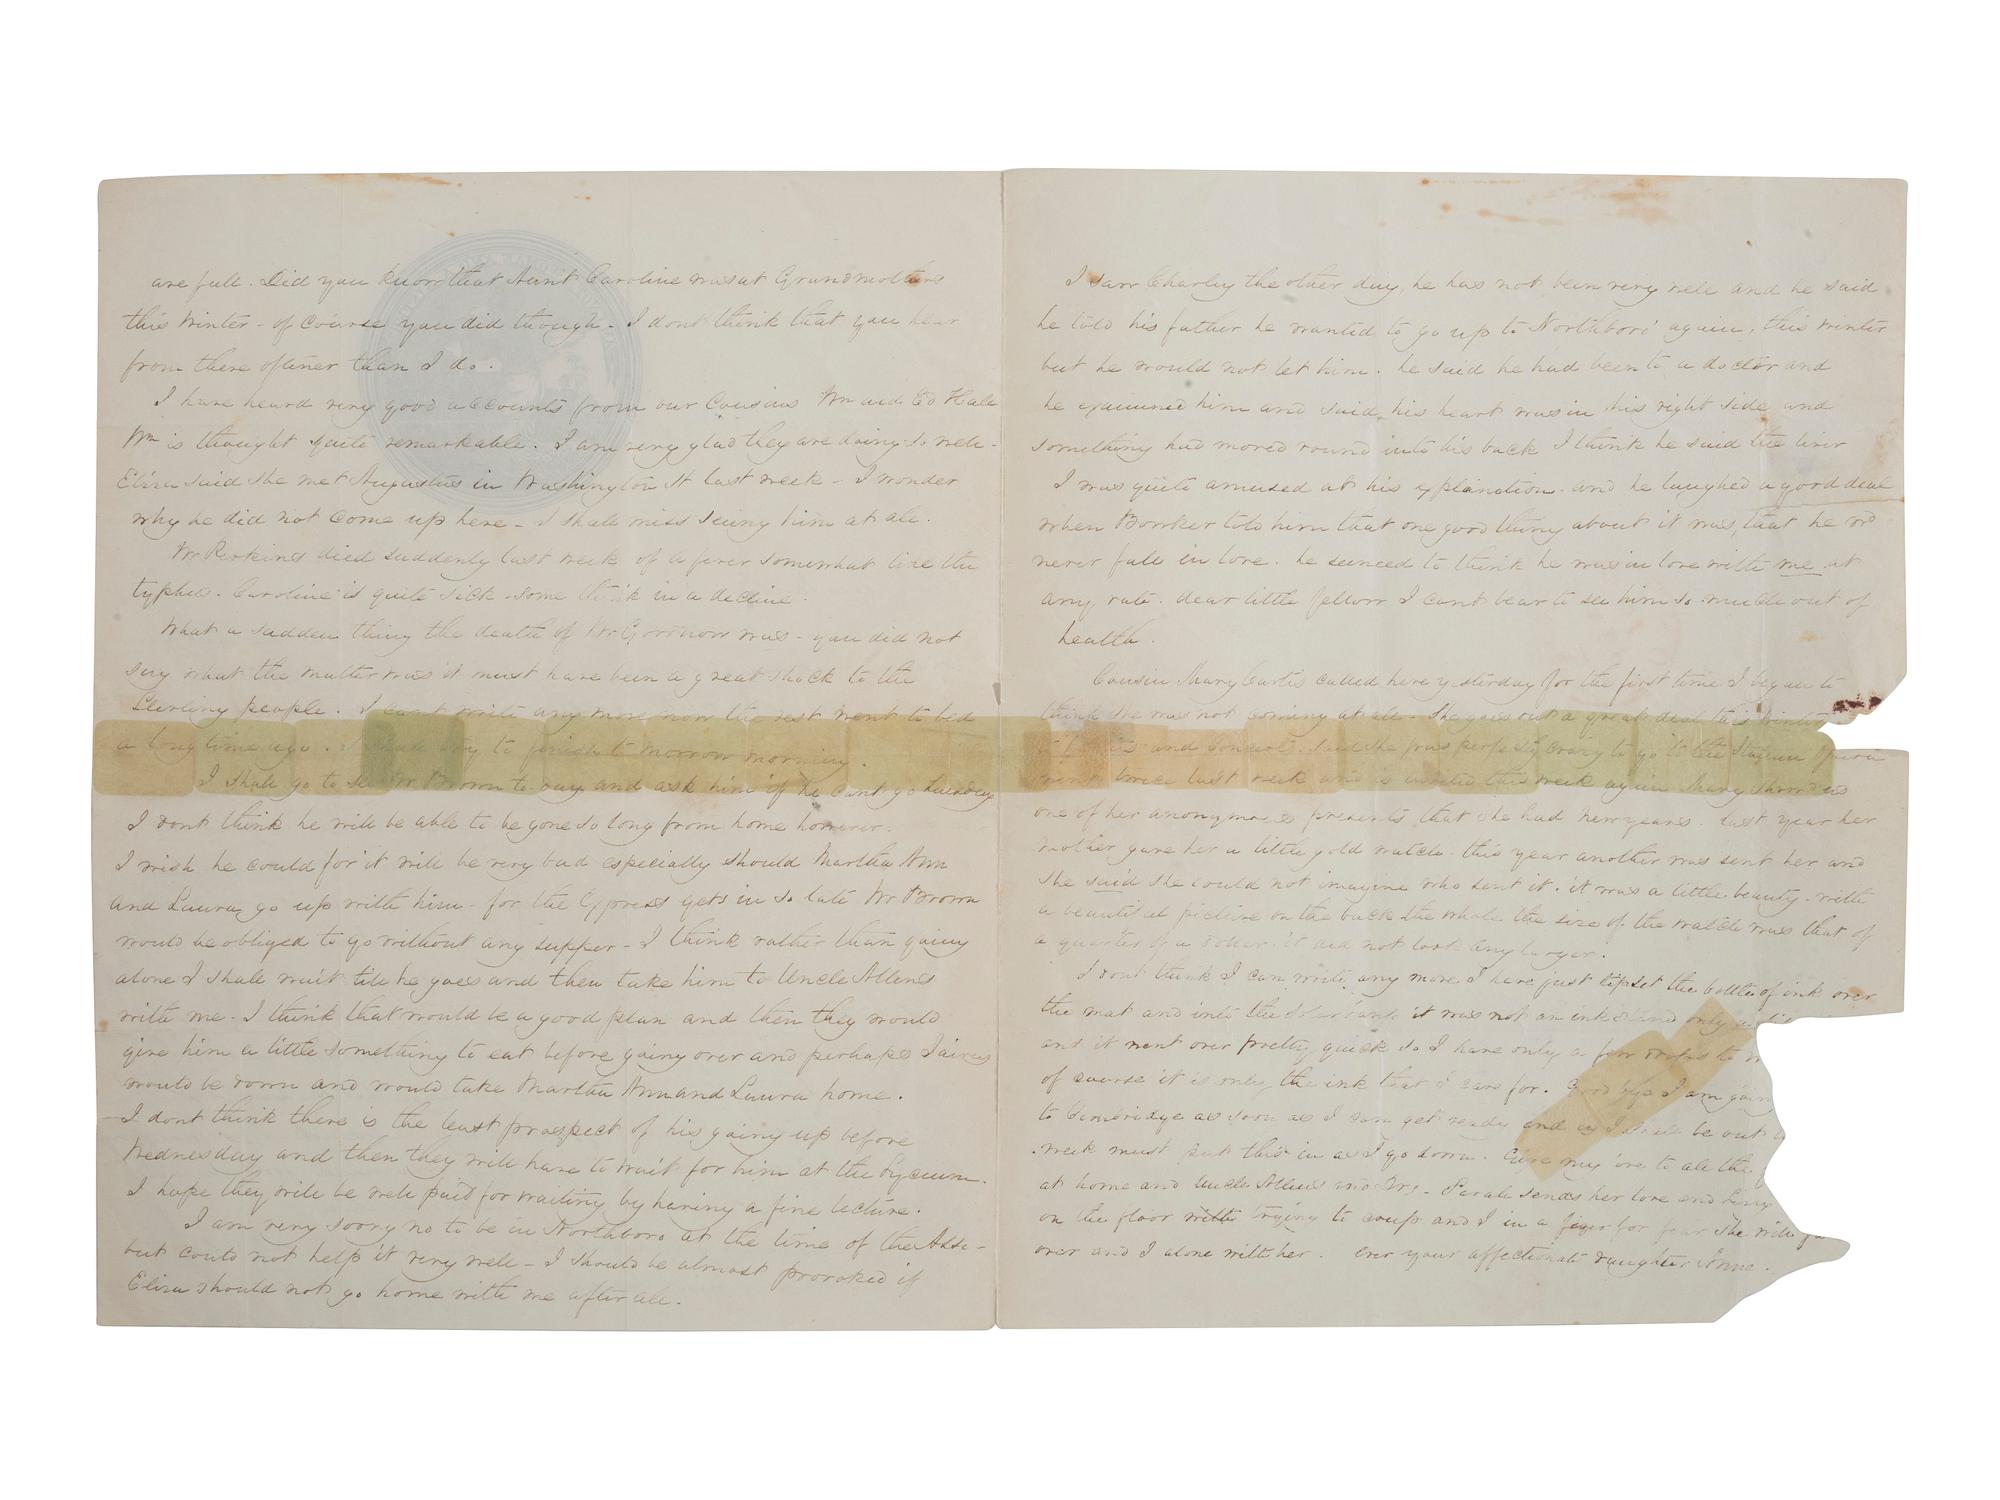 are full. Did you know that Aunt Caroline was at Grandmothers
this Winter - of Course you did though - I dont think that you hear
from there oftener than I do.
I have heard very good accounts from our Cousins Wm and Ed Hale
Wm is thought quite remarkable. I am very glad they are doing so well -
Eliza said she met Augustus in Washington St last week - I wonder
why he did not come up here - I shall miss seeing him at all.
Mr Perkins died suddenly last week of a fever somewhat like the
typhus. Caroline is quite sick - some think in a decline.
What a sudden thing the death of Mr was - you did not
say what the matter was it must have been a great shock to the
Sterling people. I cant write any more now the rest went to bed
a long time ago. I shall try to finish to morrow morning.
I shall go to see Mr Brown to day and ask him if he cant go Tuesday
I dont think he will be able to be gone so long from home however.
I wish he could for it will be very bad especially should Martha Ann
and Laura go up with him - for the Express gets in so late Mr Brown
would be obliged to go without any supper - I think rather than going
alone I shall wait till he goes and then take him to Uncle Allens
with me - I think that would be a good plan and then they would
give him a little something to eat before going over and perhaps Jairus
would be down and would take Martha Ann and Laura home.
- I dont think there is the least prospect of his going up before
Wednesday and then they will have to wait for him at the Lyceum.
I hope they will be well paid for waiting by having a fine lecture.
I am very sorry no to be in Northboro at the time of the
but could not help it very well - I should be almost provoked if
Eliza should not go home with me after all.
I saw Charley the other day, he has not been very well and he said
he told his father he wanted to go up to Northboro' again, this winter
but he would not let him. he said he had been to a doctor and
he examined him and said his heart was in his right side and
something had moved round into his back I think he said the liver
I was quite amused at his explanation. and he laughed a good deal
when Bowker told him that one good thing about it was, that he wd
never fall in love. he seemed to think he was in love with me at
any rate. dear little fellow I cant bear to see him so much out of
health.
Cousin Mary Curtis called here yesterday for the first time I began to
think she was not coming at all. She goes out a great deal this winter
to and Concerts. said she was perfectly crazy to go to the Italian Opera
went twice last week and is invited this week again Mary showed us
one of her anonymous presents that she had Newyears. last year her
mother gave her a little gold watch. this year another was sent her and
she said she could not imagine who sent it. it was a little beauty. with
a beautiful picture on the back the whole the size of the watch was that of
a quarter of a dollar. it did not look any larger.
I dont think I can write any more I have just upset the bottle of ink over
the mat and into the it was not an inkstand only
and it went over pretty quick so I have only a few drops to
of course it is only the ink that I care for. Good bye I am goin
to Cambridge as soon as I can get ready and as I shall be out
week must put this in as I go down. Give my love to all the
at home and Uncle Allens Sarah sends her love and
on the floor with trying to and I in a for fear she will
over and I alone with her. Ever your affectionate daughter Anne.